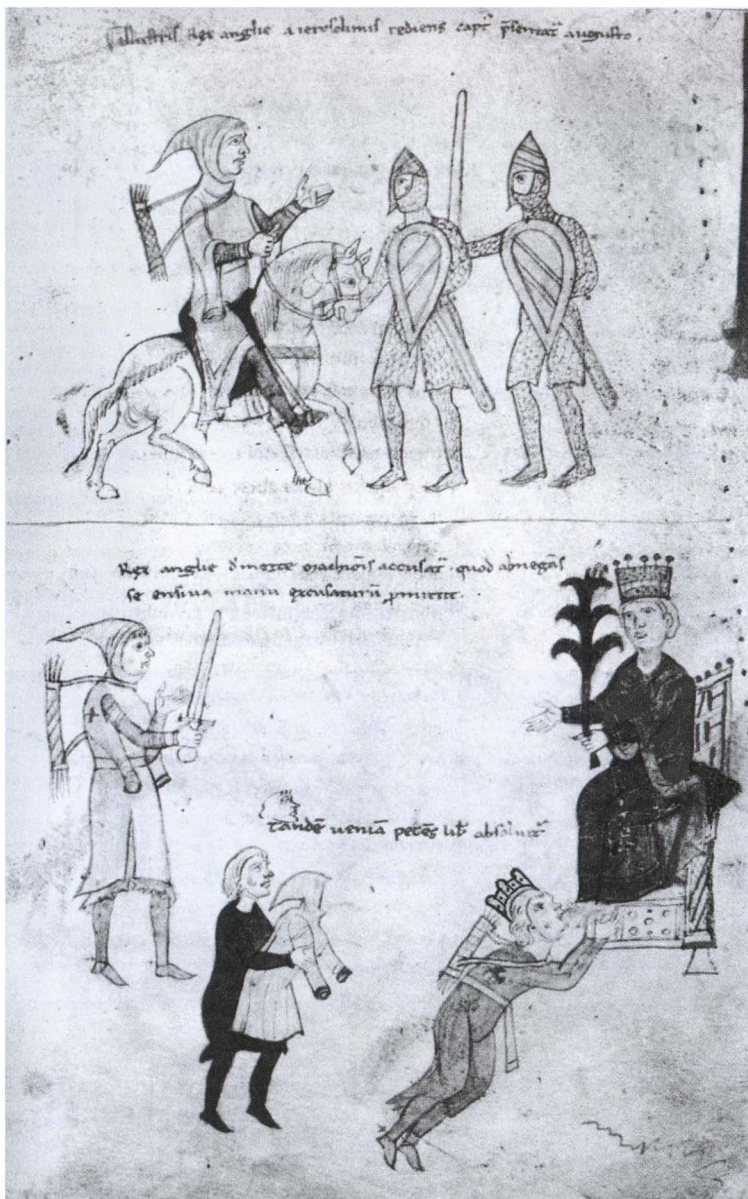 Illustris Rex anglie a ierosolimis rediens capt᷑ p̄sentat᷑ augusto.
Rex anglie d̄ morte marchiōis accusat᷑. quod abnegās
se ensiua manu excusaturū ꝑmittit.
tandē ueniā petēs lib̄ absoluit᷑